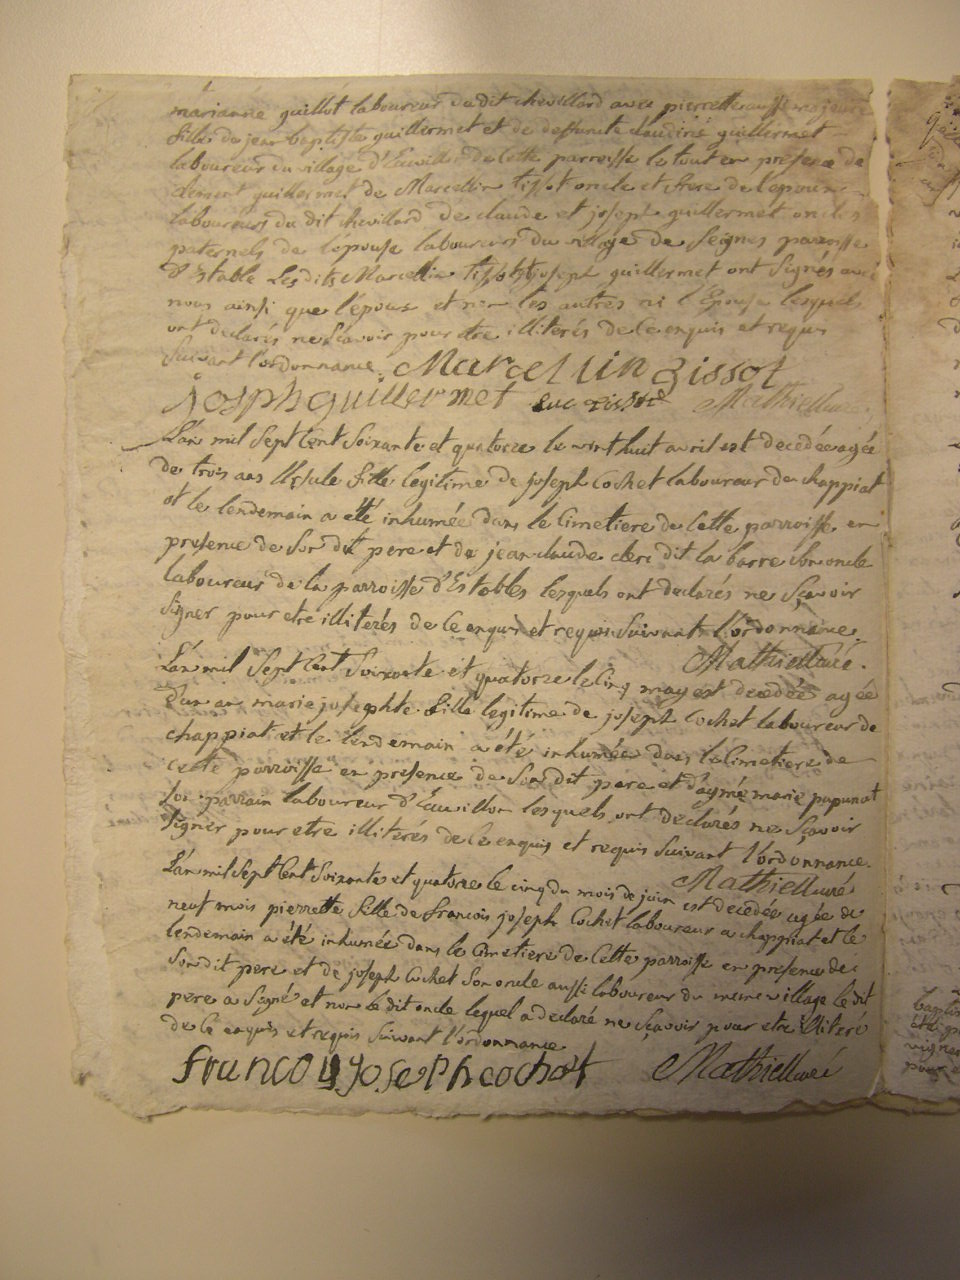 marianne guillot laboureur du dit chevillard avec pierrette aussi majeure
fille de jean baptiste guillermet et de deffuncte claudine guillermet
laboureur du village d'Euvillon de cette parroisse le tout en presence de
clement guillermet de Marcellin tissot oncle et frere de l'epoux
laboureurs du dit chevillard de claude et joseph guillermet oncles
paternels de l'épouse laboureurs du village de Seignes parroisse
d'Estable Les dits Marcellin tissot et joseph guillermet ont signés avec
nous ainsi que l'époux et non les autres ni l'Epouse lesquels
ont declarés ne Sçavoir pour etre illiterés de ce enquis et requis
suivant l'ordonnance. Marcellin Tissot
joseph guillermet luc tissot Mathieu curé.
L'an mil Sept Cent Soixante et quatorze le vint huit avril est decedée agée
de trois ans Ursule fille legitime de joseph Cochet laboureur de chappiat
et le lendemain a été inhumée dans le Cimetiere de Cette parroisse en
presence de Son dit pere et de jean claude clerc dit la barre Son oncle
laboureur de la parroisse d'Estables lesquels ont declarés ne Sçavoir
Signer pour etre illiterés de ce enquis et requis Suivant l'ordonnance.
Mathieu curé.
L'an mil Sept Cent Soixante et quatorze le Cinq may est decedée agée
d'un an marie josephte fille legitime de joseph Cochet laboureur de
chappiat et le lendemain a été inhumée dans le Cimetiere de
cette parroisse en presence de Son dit pere et d'aymé marie papunat
Son parrain laboureur d'Euvillon lesquels ont declarés ne Sçavoir
Signer pour etre illiterés de ce enquis et requis Suivant l'ordonnance.
Mathieu curé
L'an mil Sept Cent Soixante et quatorze le cinq du mois de juin est decedée agée de
neuf mois pierrette fille de francois joseph Cochet laboureur a chappiat et le
lendemain a été inhumée dans le Cimetiere de Cette parroisse en presence de
Son dit pere et de joseph Cochet Son oncle aussi laboureur du meme village le dit
pere a Signé et non le dit oncle lequel a declaré ne Sçavoir pour etre illiteré
de ce enquis et requis Suivant l'ordonnance
francoy joseph cochet Mathieu curé